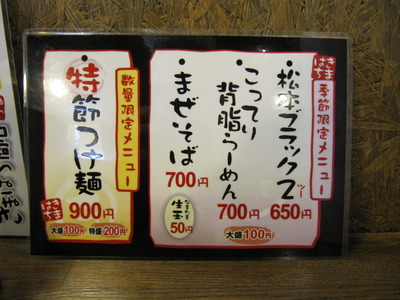 きまはち
季節限定メニュー
松本ブラックZ
ツー
650円
こってり
背脂らーめん
700円
大盛100円
まぜそば
700円
なまたま
生玉
50円
数量限定メニュー
特節つけ麺
きまはち
900円
大盛100円 特盛200円